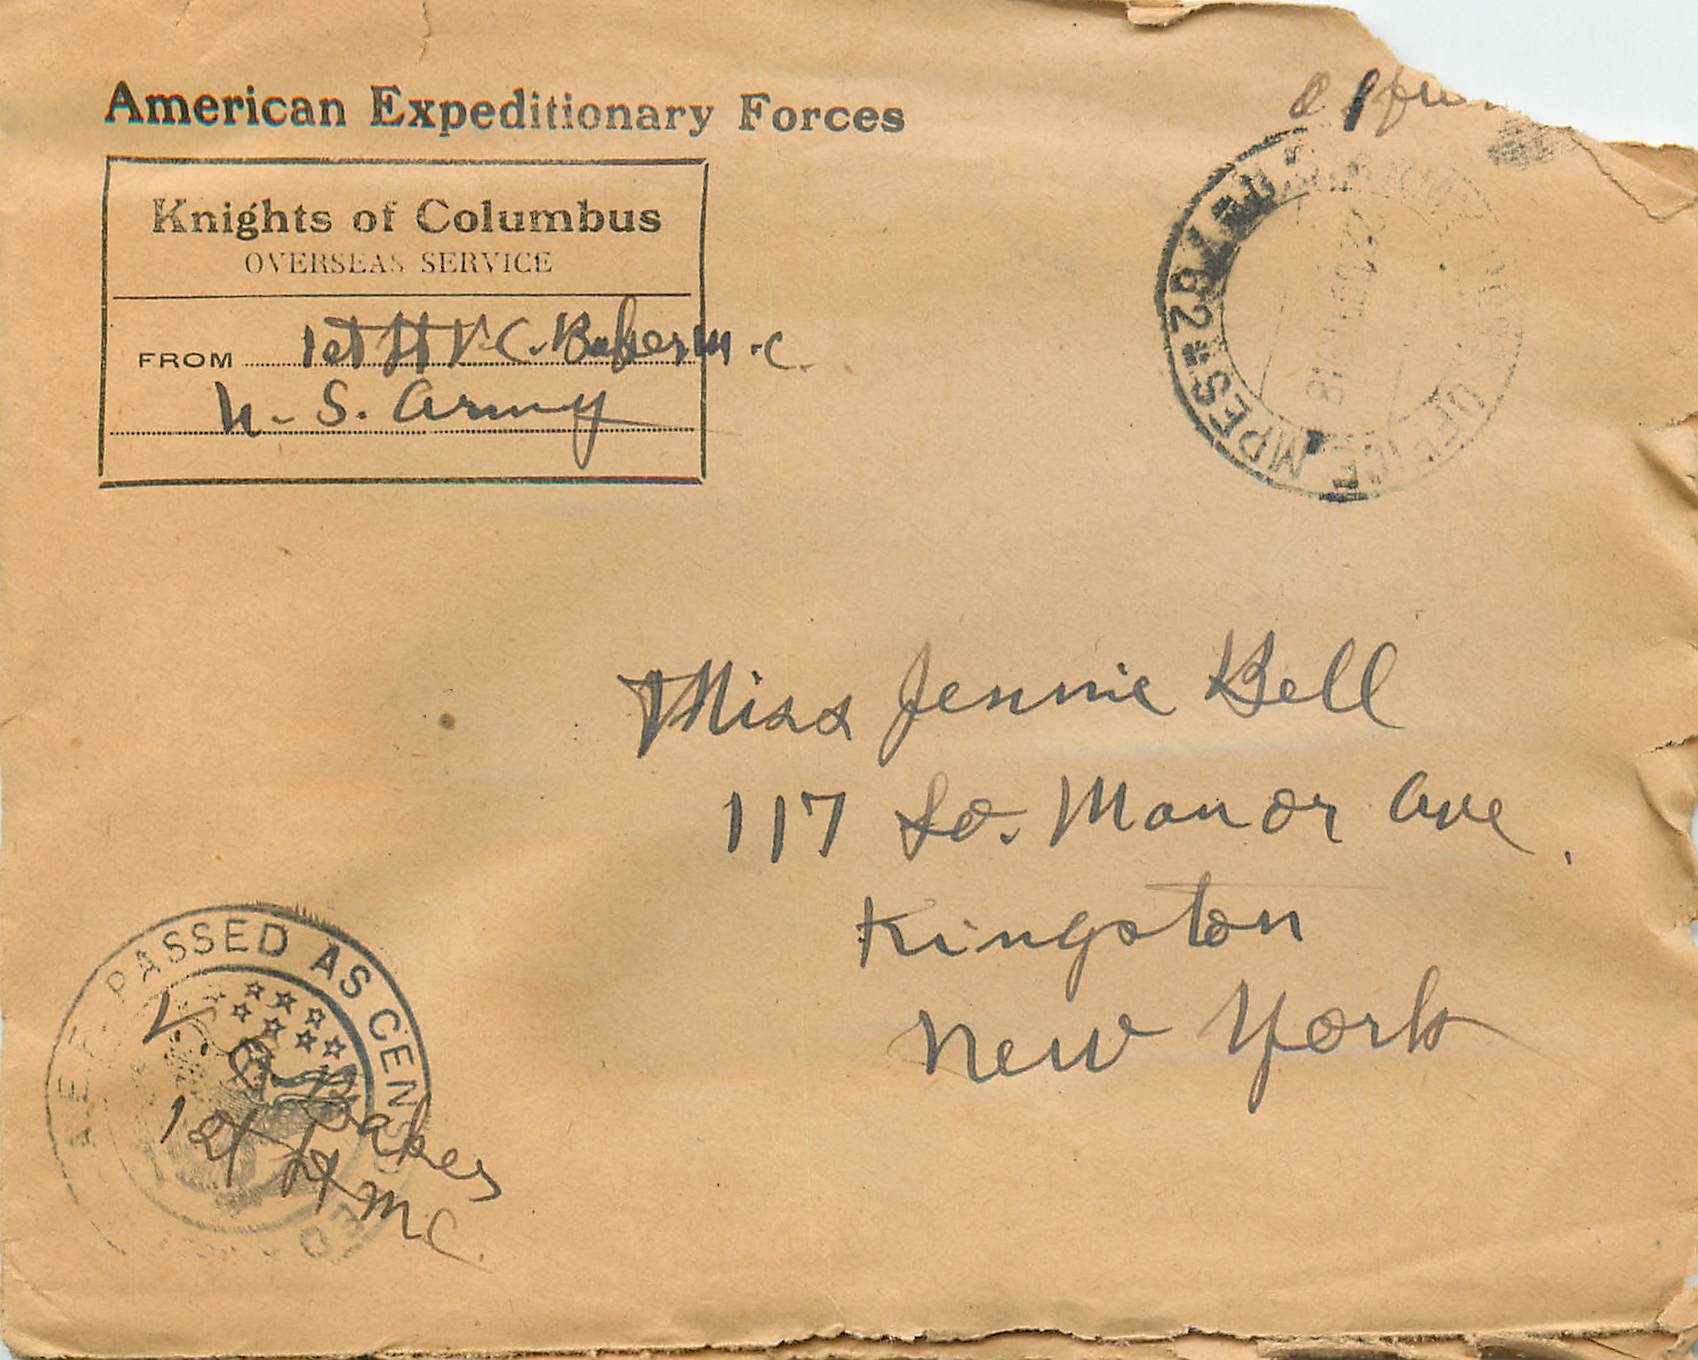 American Expeditionary Forces
Knights of Columbus
OVERSEAS SERVICE
FROM 1st Lt V. C. Baker M.C.
U. S. Army
762
OFFICE
Miss Jennie Bell
117 So. Manor Ave.
Kingston
New York
A.E.F. PASSED AS CENSORED
V. C. Baker
1st Lt M.C.